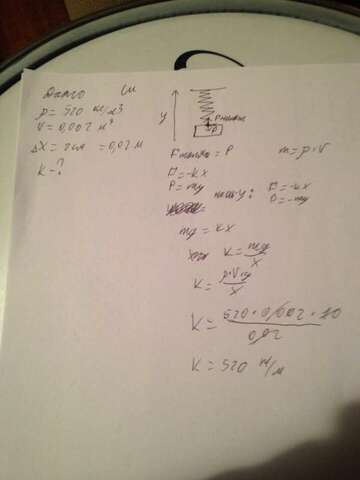 Дано СИ
ρ = 520 кг/м³
V = 0,002 м³
ΔX = 2 см = 0,02 м
K - ?
y
P
= P
m = ρ · V
F = -kx
P = mg
F = -kx
P = -mg
mg = kx
K = mg/x
K = ρ·V·g/x
K = 520 · 0,002 · 10 / 0,02
K = 520 н/м